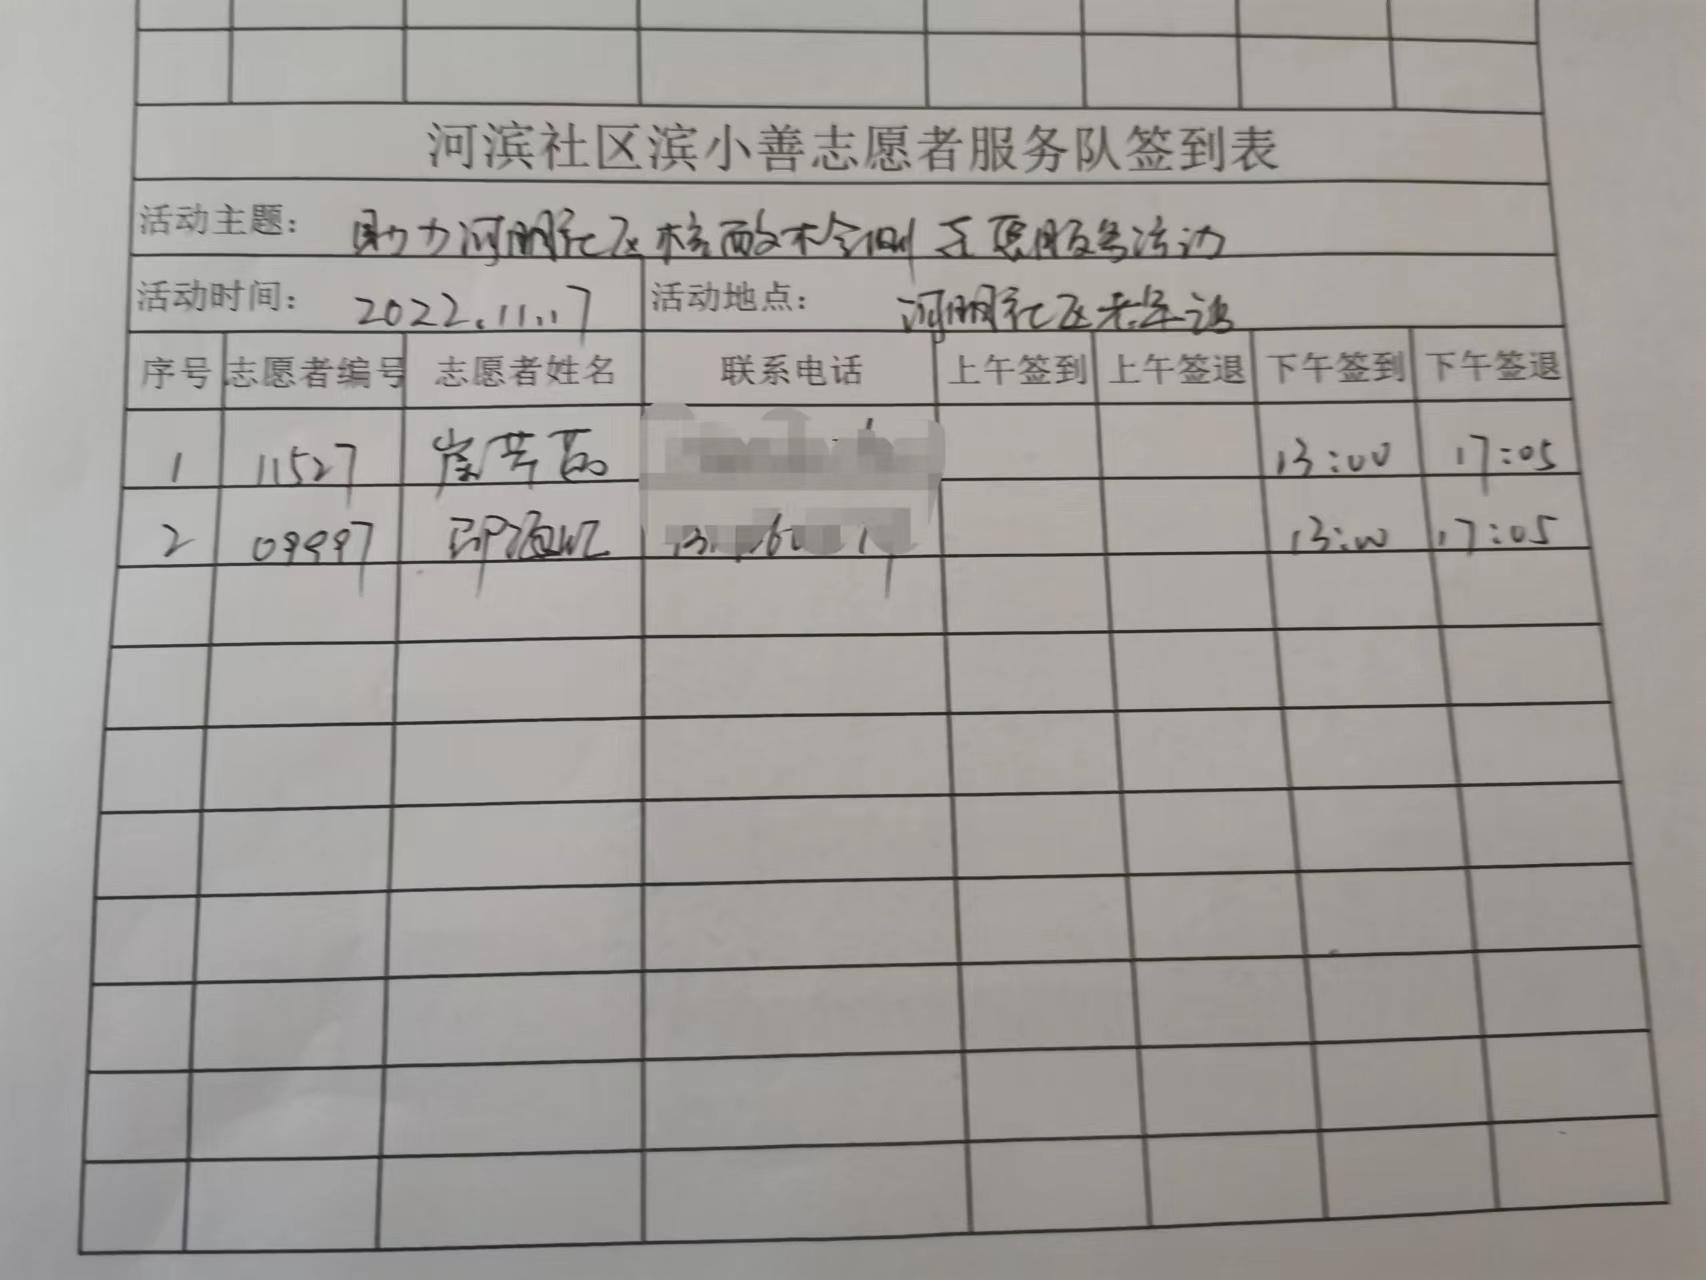 河滨社区滨小善志愿者服务队签到表
活动主题: 助力河明社区核酸检测志愿服务活动
活动时间: 2022.11.17 活动地点: 河明社区老年
序号 志愿者编号 志愿者姓名 联系电话 上午签到 上午签退 下午签到 下午签退
1 11527 13:00 17:05
2 09997 13:00 17:05